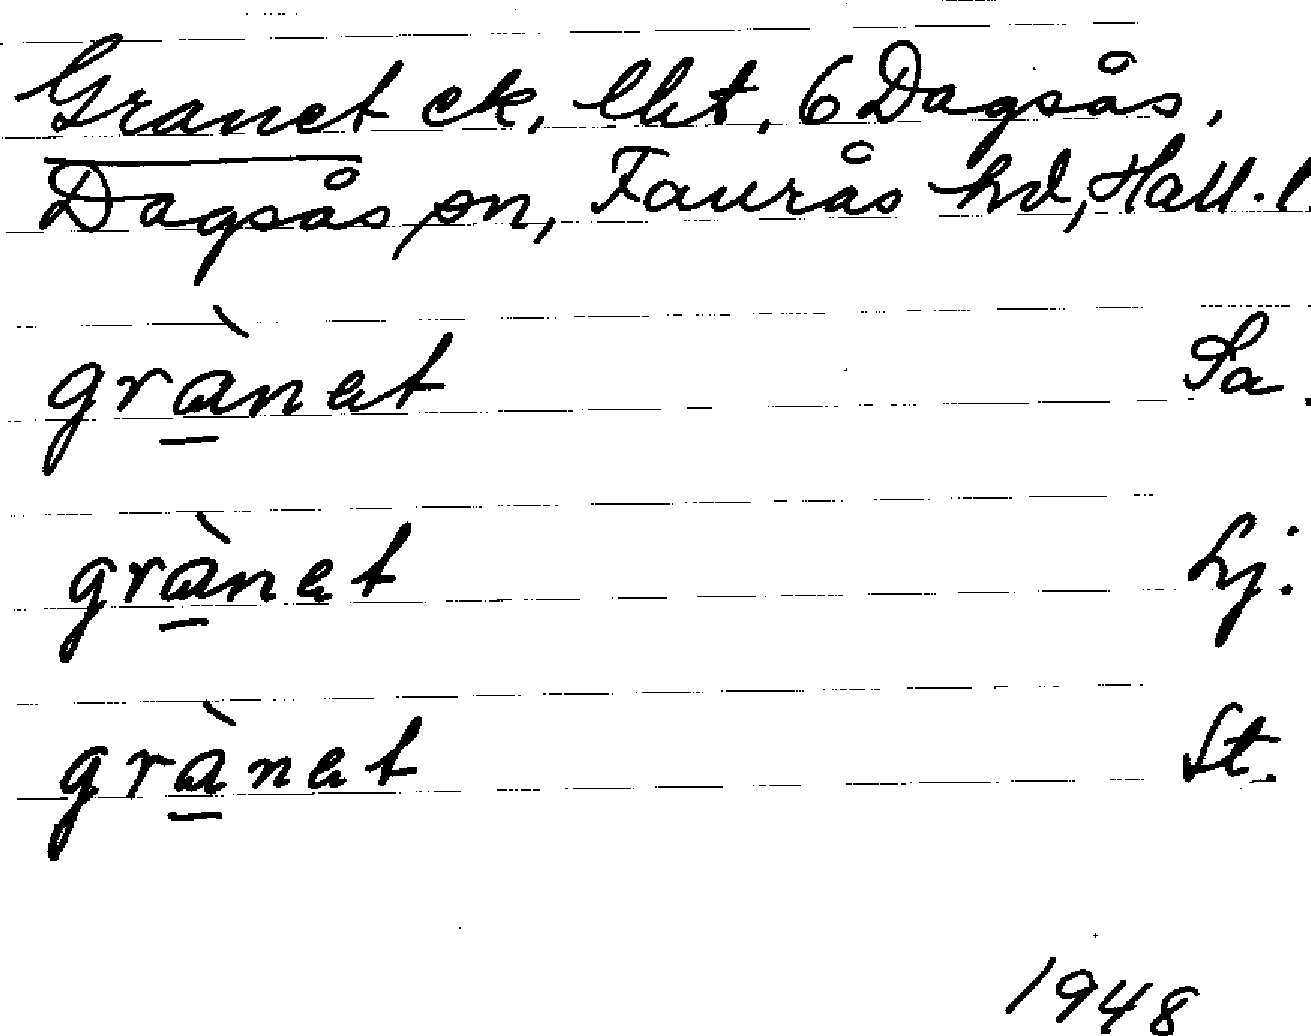 Granet ek, lht, 6 Dagsås,
Dagsås sn, Faurås hd, Hall. l.
grànet Sa.
grànet Lj.
grànet St.
1948